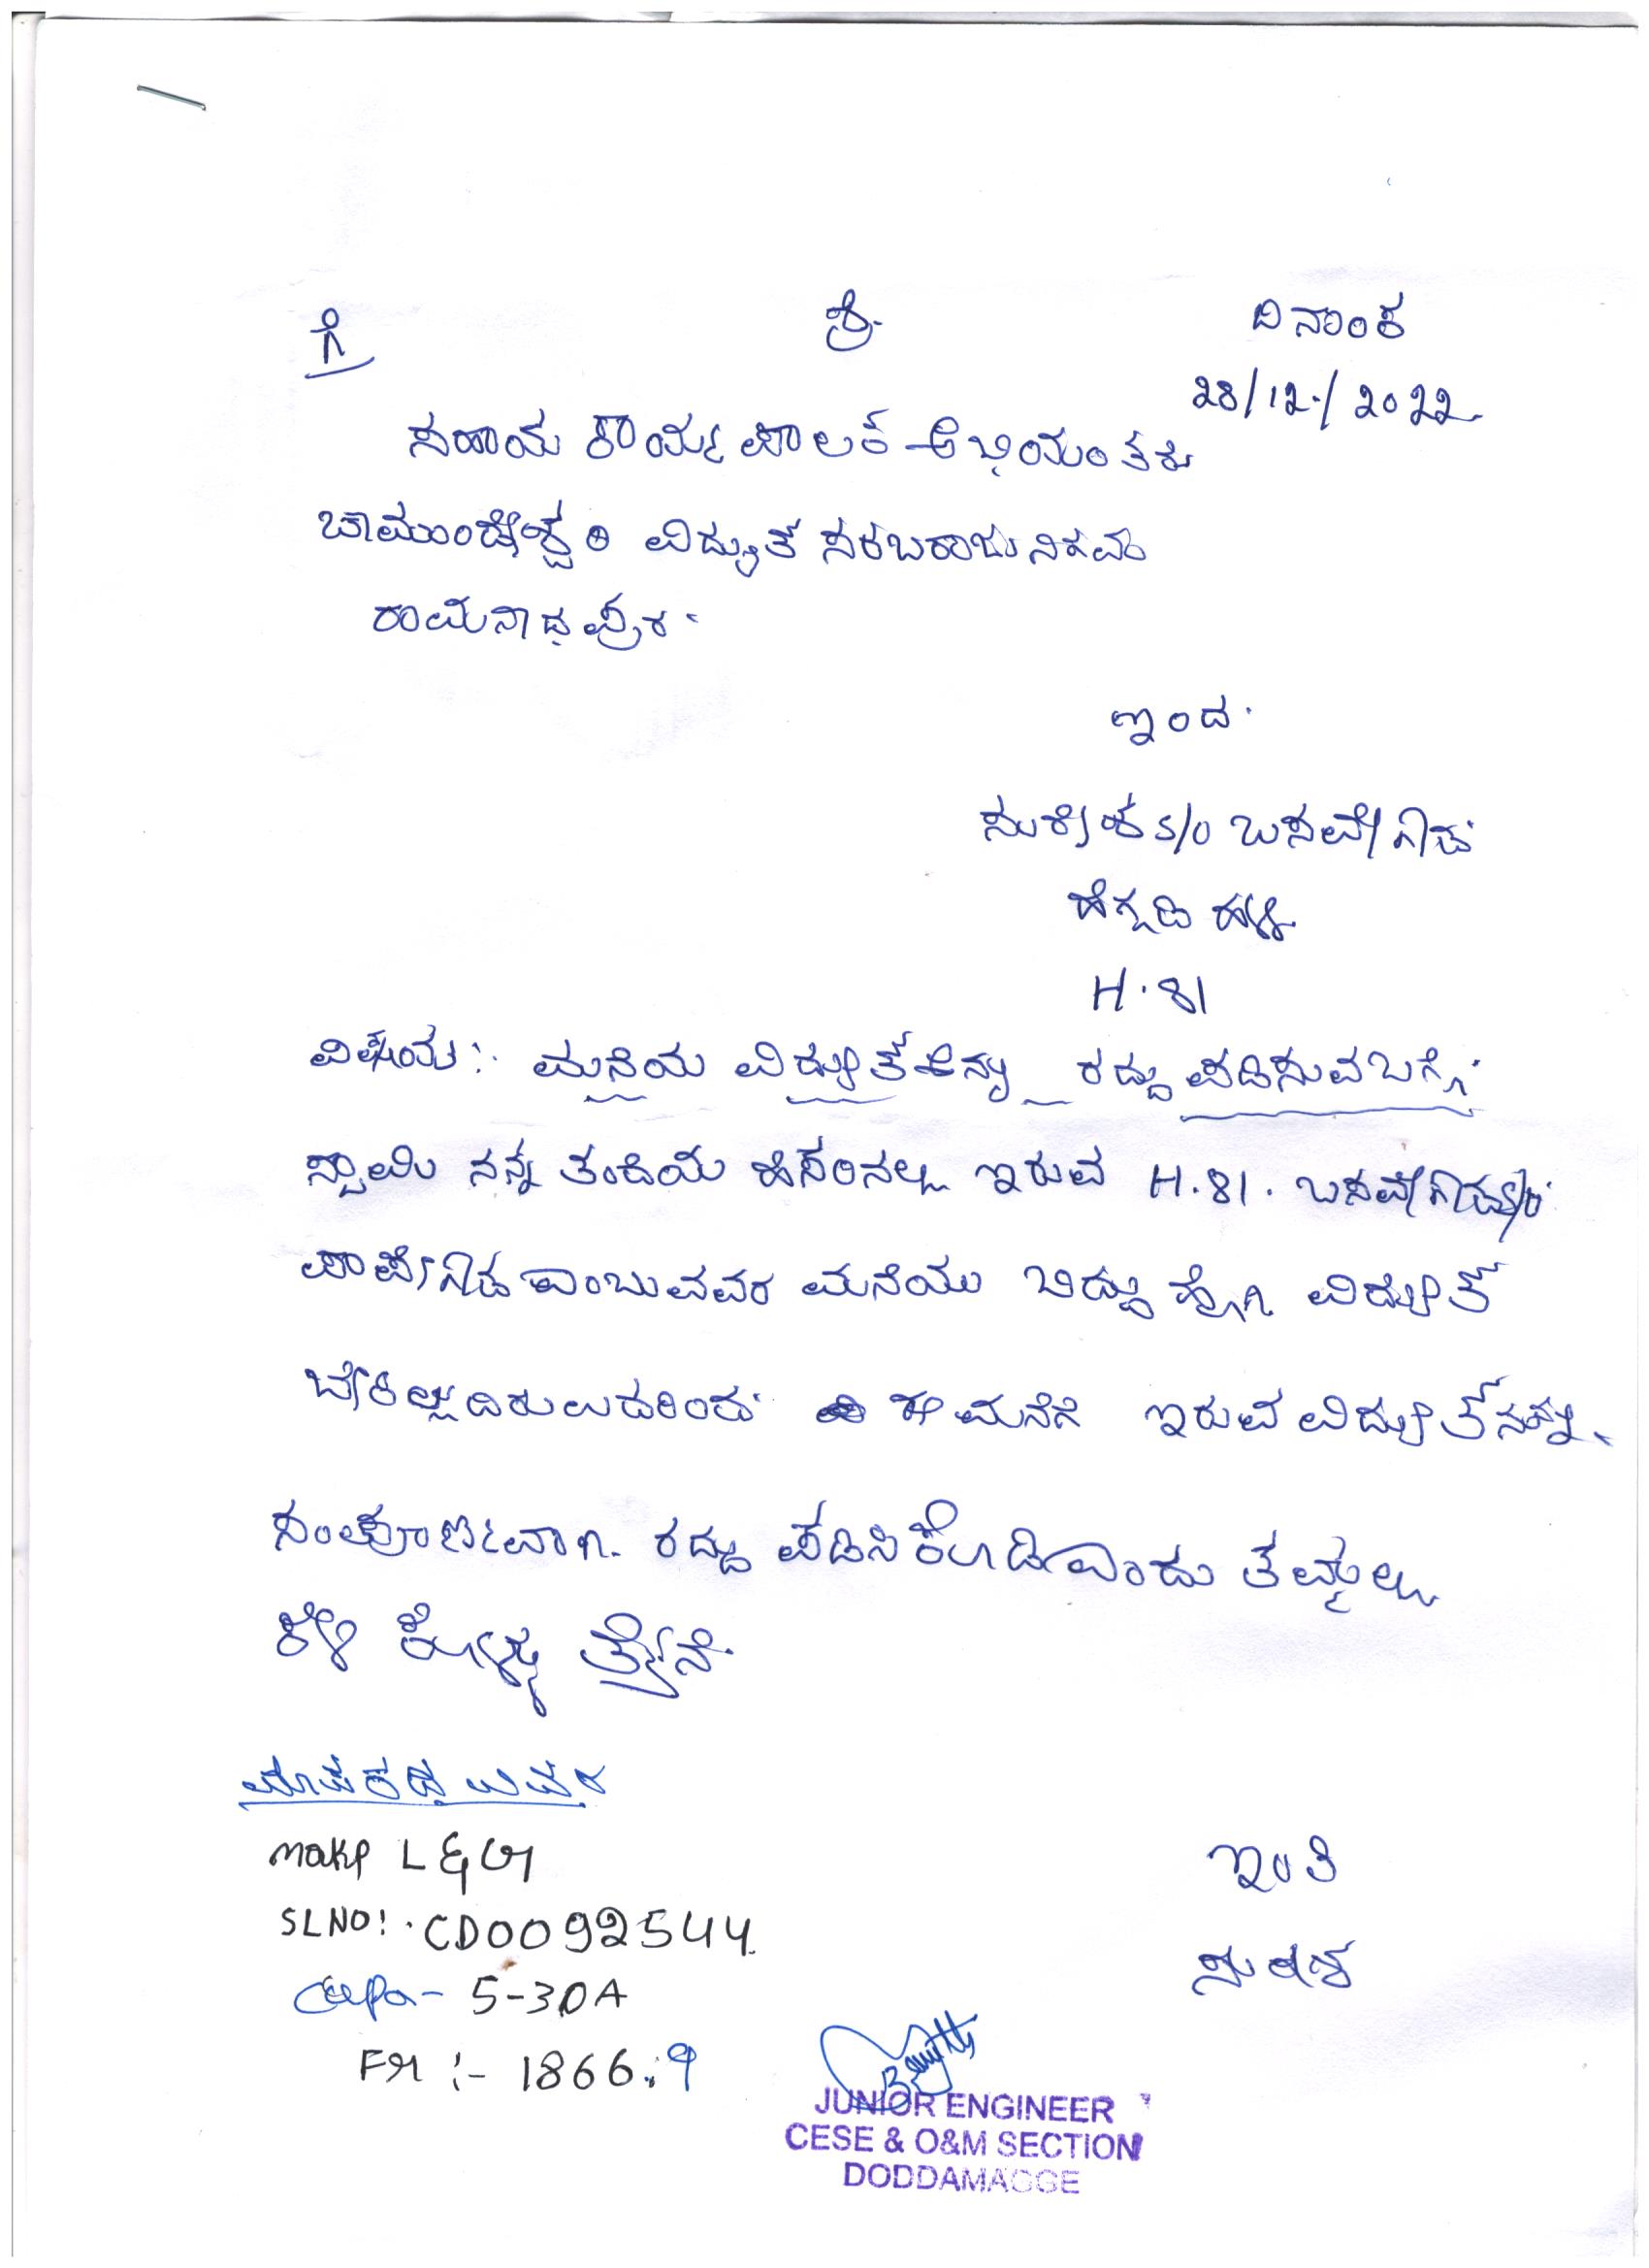 ಗೆ ಶ್ರೀ ದಿನಾಂಕ
28/12/2022
ಸಹಾಯ ಕಾರ್ಯ ಪಾಲಕ ಅಭಿಯಂತರು
ಚಾಮುಂಡೇಶ್ವರಿ ವಿದ್ಯುತ್ ಸರಬರಾಜು ನಿಗಮ
ರಾಮನಾಥಪುರ.
ಇಂದ.
ಸುರೇಶ S/O ಬಸವೇಗೌಡ
ಹೆಗ್ಗಡಿ ಹಳ್ಳಿ
H.81
ವಿಷಯ:- ಮನೆಯ ವಿದ್ಯುತ್ ಅನ್ನು ರದ್ದು ಪಡಿಸುವ ಬಗ್ಗೆ
ಸ್ವಾಮಿ ನನ್ನ ತಂದೆಯ ಹೆಸರಿನಲ್ಲಿ ಇರುವ H.81. ಬಸವೇಗೌಡ
ಪಾಪೇಗೌಡ ಎಂಬುವವರ ಮನೆಯು ಬಿದ್ದು ಹೋಗಿ ವಿದ್ಯುತ್
ಈ ಮನೆಗೆ ಇರುವ ವಿದ್ಯುತ್ ನನ್ನು
ಸಂಪೂರ್ಣವಾಗಿ ರದ್ದು ಪಡಿಸಿ ಕೊಡಿ ಎಂದು ತಮ್ಮಲ್ಲಿ
ಕೇಳಿ ಕೊಳ್ಳುತ್ತೇನೆ.
ಮಾಪಕದ ವಿವರ
make L&G
SLNO:. CD0092544
Capa- 5-30A
FR :- 1866.9
ಇಂತಿ
ಸುರೇಶ
JUNIOR ENGINEER
CESE & O&M SECTION
DODDAMAGGE